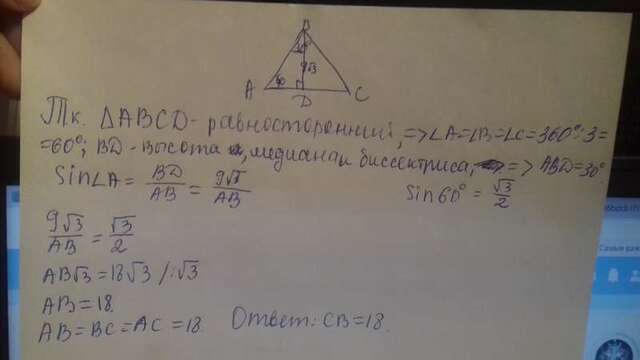 B
30°
9√3
A 60 D C
Т.к. ΔABCD - равносторонний, => ∠A=∠B=∠C=360°:3=
=60°; BD - высота, медиана и биссектриса, => ABD=30°
Sin∠A = BD/AB = 9√3/AB Sin60° = √3/2
9√3/AB = √3/2
AB√3 = 18√3 /:√3
AB = 18.
AB = BC = AC = 18. Ответ: CB = 18.
Самые важ